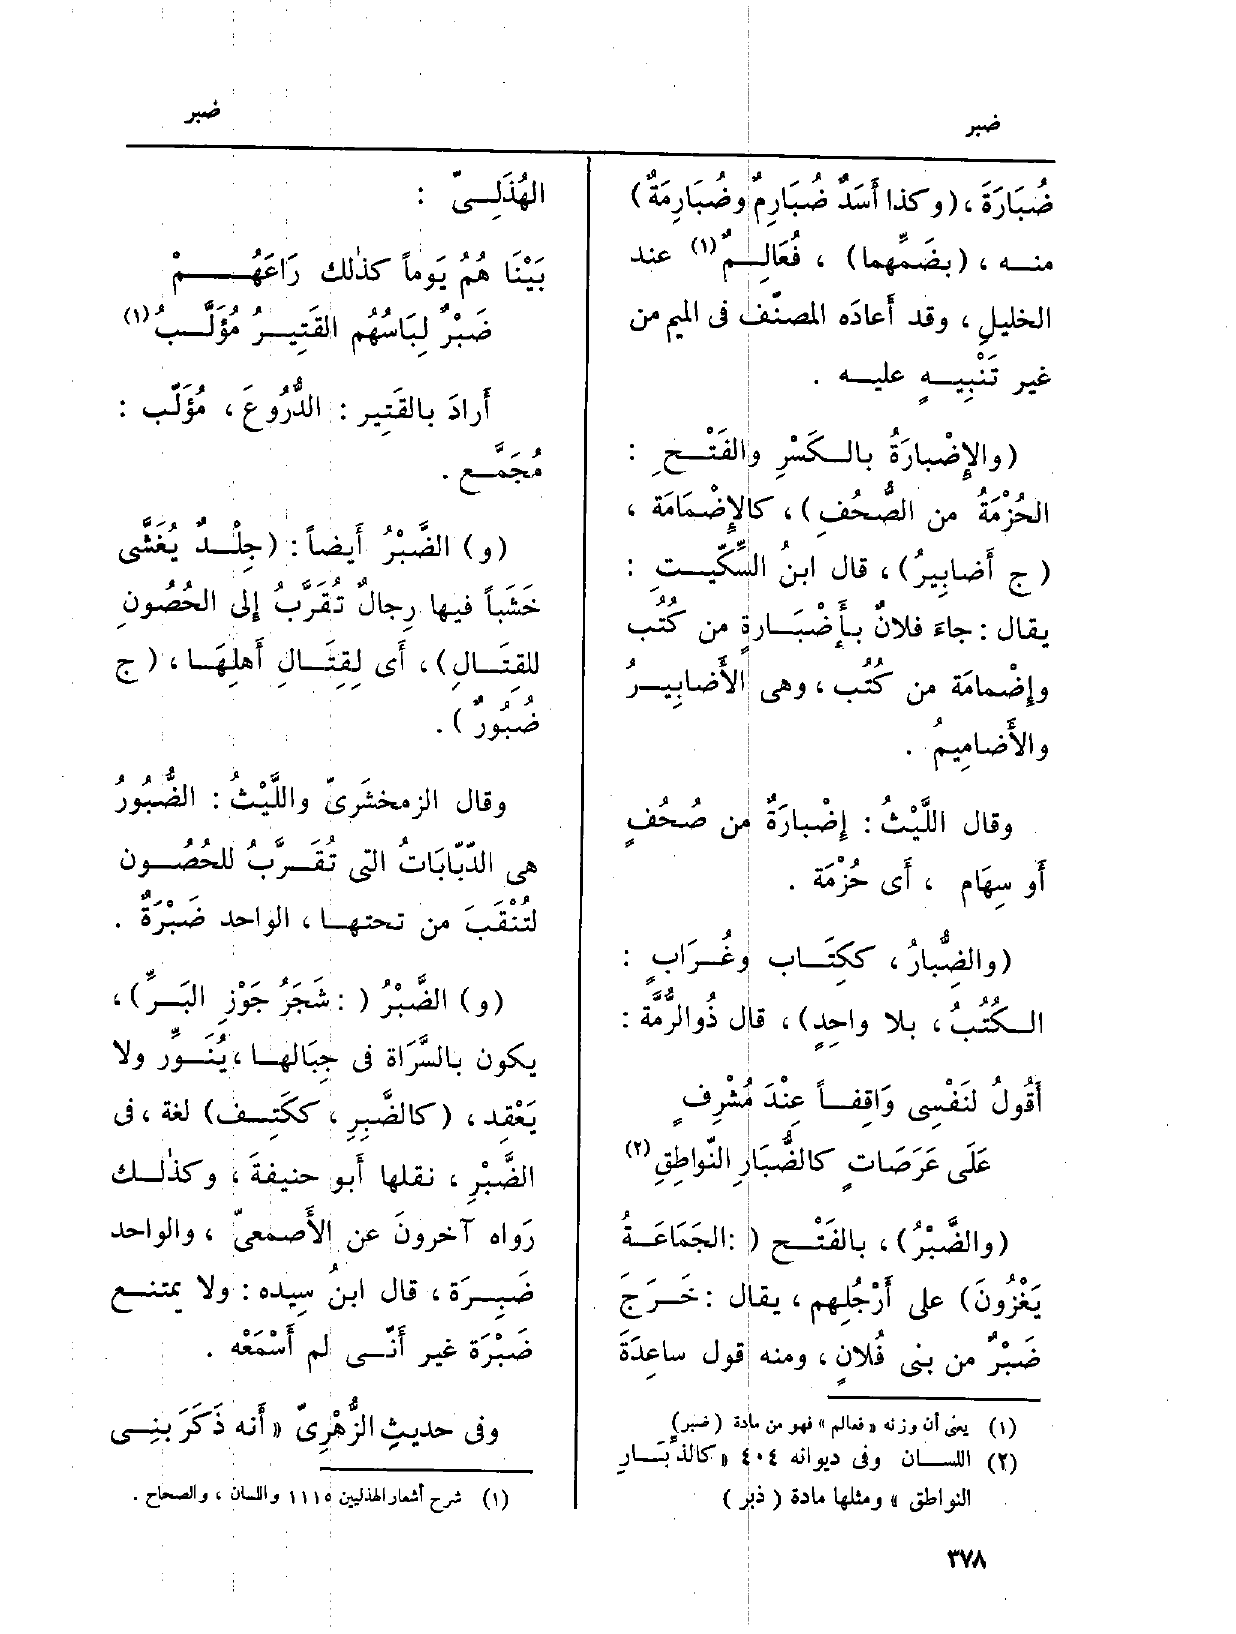 ضبر
ضبر
ضُبَارَةَ ، (وكذا أَسَدٌ ضُبَارِمٌ وضُبَارِمَةٌ)
منه ، (بضَمِّهما) ، فُعَالِمٌ (١) عند
الخليلِ ، وقد أَعادَه المصنّف فى الميم من
غير تَنْبِيهٍ عليه .
(والإِضْبارَةُ بالكَسْرِ والفَتْحِ :
الحُزْمَةُ من الصُّحُفِ) ، كالإِضْمَامَة ،
(ج أَضابِيرُ) ، قال ابنُ السِّكِّيتِ :
يقال : جاءَ فلانٌ بإِضْبَارةٍ من كُتُب
وإِضْمامَة من كُتُب ، وهى الأَضابِيرُ
والأَضامِيمُ .
وقال اللَّيْثُ : إِضْبارَةٌ من صُحُفٍ
أَو سِهَام ، أَى حُزْمَة .
(والضِّبارُ ، ككِتَاب وغُرَابٍ :
الكُتُبُ ، بلا واحِدٍ) ، قال ذُو الرُّمَّة :
أَقُولُ لنَفْسِى وَاقِفاً عِنْدَ مُشْرِفٍ
عَلَى عَرَصَاتٍ كالضُّبَارِ النَّواطِقِ (٢)
(والضَّبْرُ) ، بالفَتْح ( : الجَمَاعَةُ
يَغْزُونَ) على أَرْجُلِهِم ، يقال : خَرَجَ
ضَبْرٌ من بنى فُلانٍ ، ومنه قول ساعِدَةَ
(١) يعنى أن وزنه « فعالم » فهو من مادة (ضبر)
(٢) اللسان وفى ديوانه ٤٠٤ « كالذبَار
النواطق » ومثلها مادة (ذبر)
الهُذَلِىّ :
بَيْنَا هُمُ يَوماً كذٰلك رَاعَهُمْ
ضَبْرٌ لِبَاسُهُم القَتِيرُ مُؤَلَّبُ (١)
أَرادَ بالقَتِير : الدُّرُوعَ ، مُؤَلَّب :
مُجَمَّع .
(و) الضَّبْرُ أَيضاً : (جِلْدٌ يُغَشَّى
خَشَباً فيها رِجالٌ تُقَرَّبُ إِلى الحُصُونِ
للقِتَالِ) ، أَى لِقِتَالِ أَهلِهَا ، (ج
ضُبُورٌ) .
وقال الزمخشَرىّ واللَّيْثُ : الضُّبُورُ
هى الدّبّابَاتُ التى تُقَرَّبُ للحُصُون
لتُنْقَبَ من تحتها ، الواحد ضَبْرَةٌ .
(و) الضَّبْرُ ( : شَجَرُ جَوْزِ البَرِّ) ،
يكون بالسَّرَاة فى جِبَالها ، يُنَوِّرُ ولا
يَعْقِد ، (كالضَّبِرِ ، ككَتِف) لغة ، فى
الضَّبْرِ ، نقلها أَبو حنيفةَ ، وكذٰلك
رَواه آخرونَ عن الأَصمعىّ ، والواحد
ضَبِرَة ، قال ابنُ سِيده : ولا يمتنع
ضَبْرَة غير أَنّى لم أَسْمَعْه .
وفى حديثِ الزُّهْرِىّ « أَنه ذَكَرَ بَنِى
(١) شرح أشعار الهذليين ١١١٥ واللسان ، والصحاح .
٣٧٨